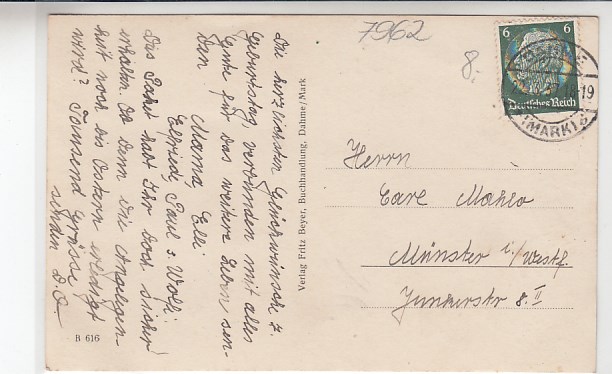 7962
8.
6 6
Deutsches Reich
(MARK)
Die herzlichsten Glückwünsche z.
Geburtstag, verbunden mit alles
Gute für das weitere Leben sen-
den
Mama Elli
Elfriede, Paul u. Wolfi.
Das Paket habt Ihr doch sicher
erhalten. Ob denn die Angelegen-
heit noch bis Ostern erledigt
wird? Tausend Grüsse
senden D. O.
B 616
Verlag Fritz Beyer, Buchhandlung, Dahme/Mark
Herrn
Carl Mahlo
Münster i/Westf.
Junkerstr 8. II